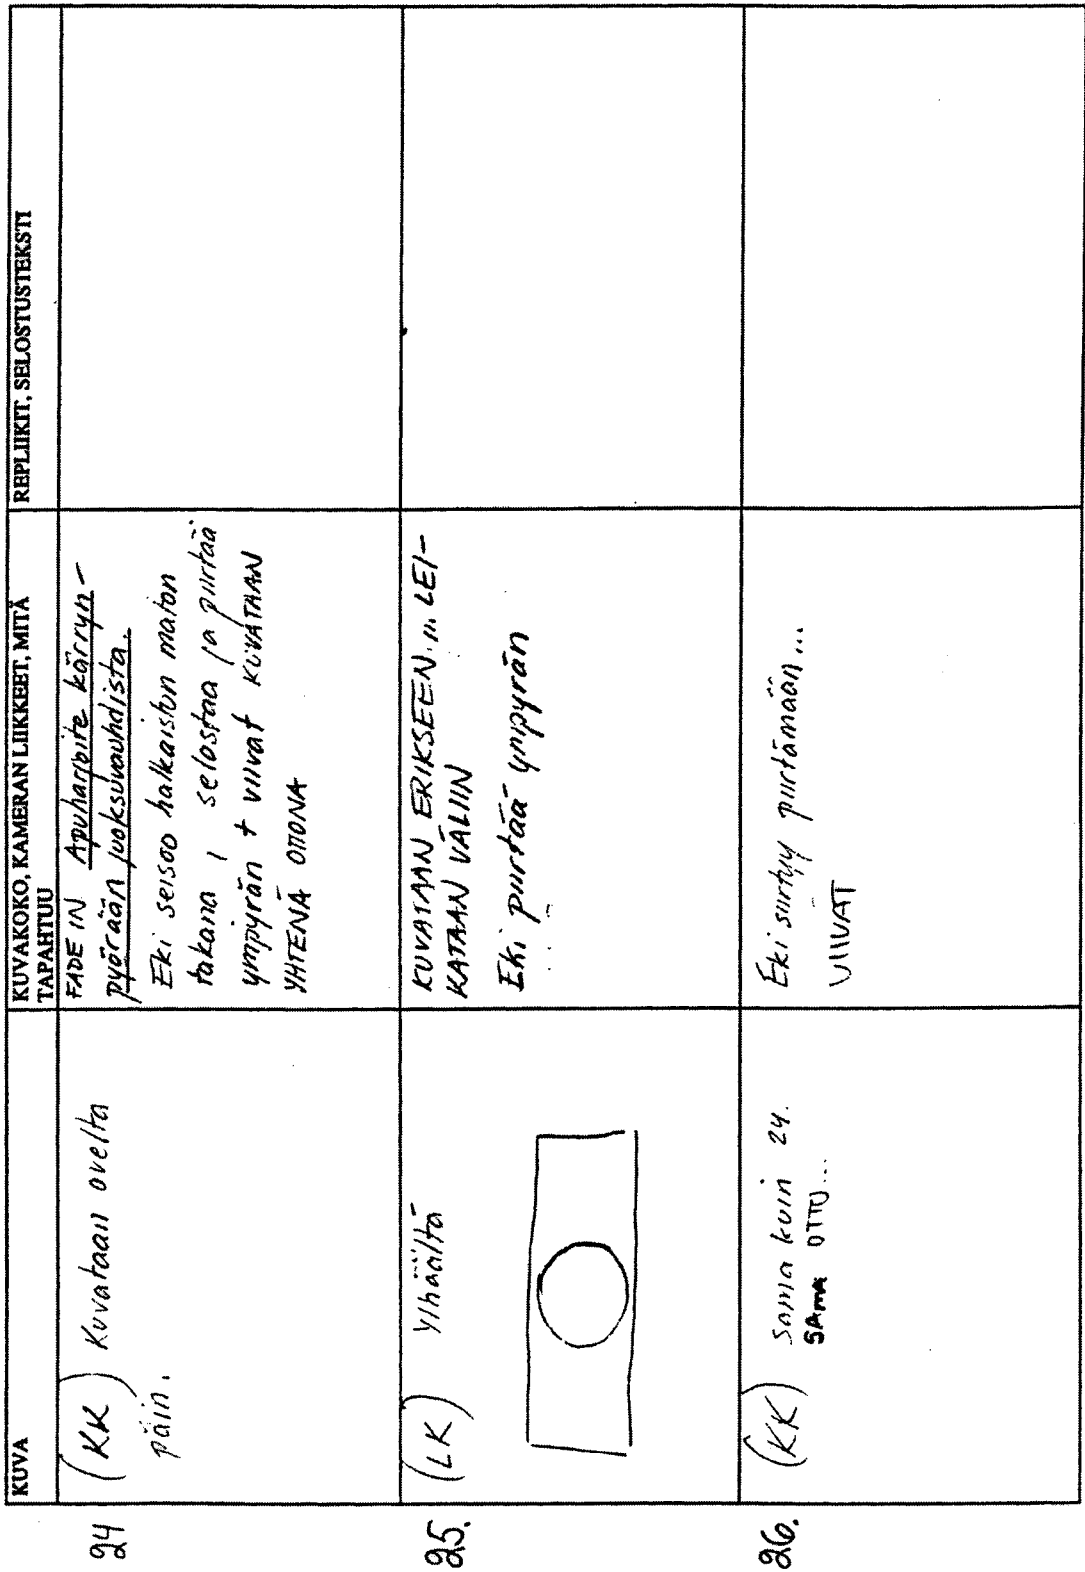 KUVA
KUVAKOKO, KAMERAN LIIKKEET, MITÄ
TAPAHTUU
REPLIIKIT, SELOSTUSTEKSTI
24
(KK) Kuvataan ovelta
päin.
FADE IN Apuharjoite kärryn-
pyörään juoksuvauhdista.
Eki seisoo halkaistun maton
takana, selostaa ja piirtää
ympyrän + viivat KUVATAAN
YHTENÄ OTTONA
25.
(LK) Ylhäältä
KUVATAAN ERIKSEEN... LEI-
KATAAN VÄLIIN
Eki piirtää ympyrän
...
26.
(KK) Sama kuin 24.
SAMA OTTO...
Eki siirtyy piirtämään...
VIIVAT